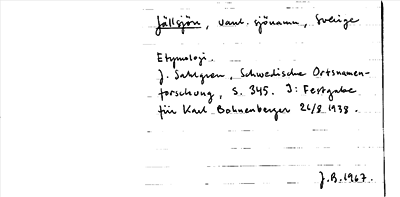 Fällsjön, vanl. sjönamn, Sverige
Etymologi.
J. Sahlgren, Schwedische Ortsnamen-
forschung, S. 345. I: Festgabe
für Karl Bohnenberger 26/8 1938.
J.B. 1967.